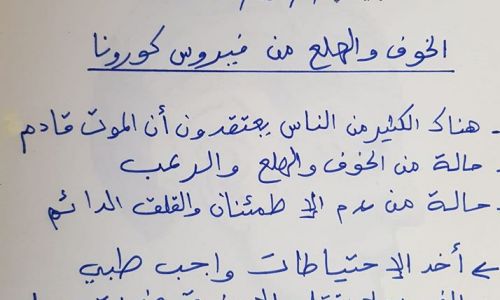 الخوف والهلع من فيروس كورونا
- هناك الكثير من الناس يعتقدون أن الموت قادم
- حالة من الخوف والهلع والرعب
- حالة من عدم الإطمئنان والقلق الدائم
← أخد الإحتياطات واجب طبي